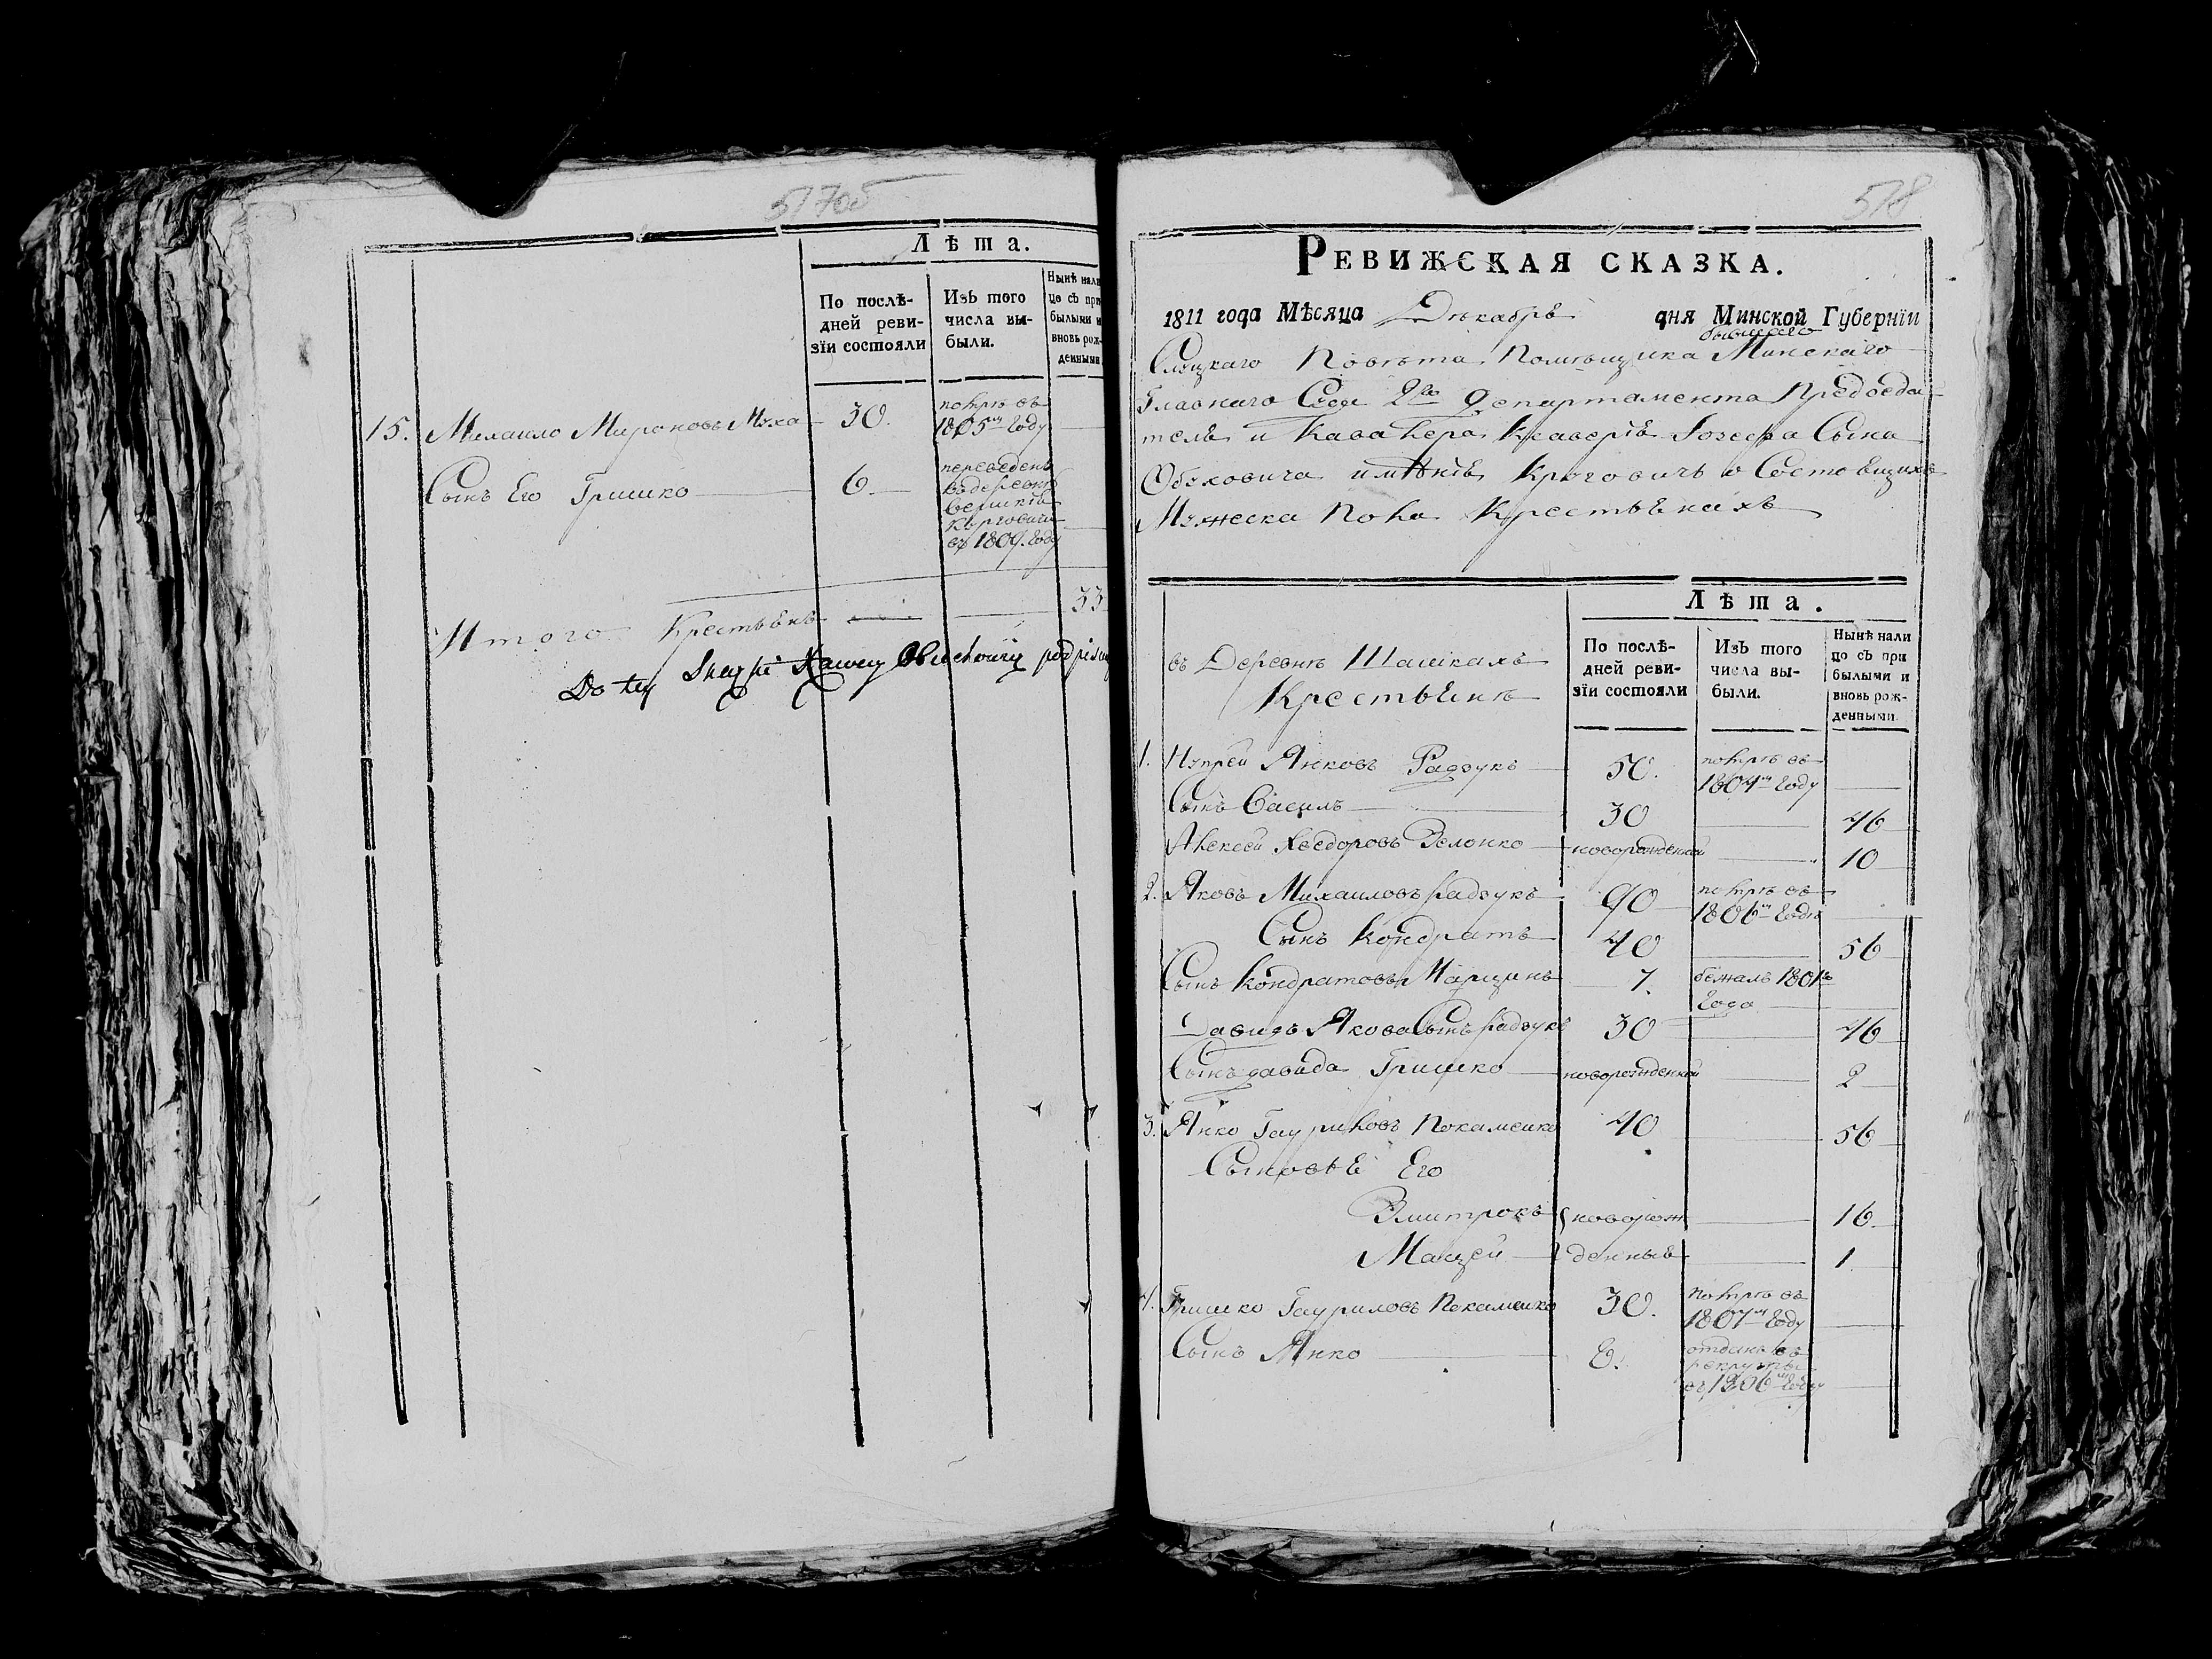 517об
Лѣта.
По послѣ-
дней реви-
зїи состояли
Изъ того
числа вы-
были.
Нынѣ нали
цо съ при
былыми и
вновь рож-
денными
15. Михаило Мироновъ Муха 30. помрѣ въ
1805м году
Сынъ Его Гришко 6 переведенъ
въ деревню
въ 1809. году
Итого Крестьянъ 33
Do tey Skazki Xawery Obuchowicz podpisuię
518
Ревижская сказка.
1811 года Мѣсяца Декабря дня Минской Губернїи
бывшаго
Слуцкаго Повѣта Помѣщика Минскаго
Главнаго Суда 2го Департамента Председа-
теля и Кавалера Ксаверія Іозефа Сына
Обуховича имѣнія Круговичъ о Состоящихъ
Мужеска Пола Крестьянахъ
Лѣта.
въ Деревнѣ Шашкахъ
Крестьянъ
По послѣ-
дней реви-
зїи состояли
Изъ того
числа вы-
были.
Нынѣ нали
цо съ при
былыми и
вновь рож-
денными
1. Янковъ Радзукъ 50. помрѣ въ
1804м году
Сынъ Василь 30 46
Алексей Хведоровъ новорожденной 10
2. Яковъ Михаиловъ Радзукъ 90 помрѣ въ
1806м годѣ
Сынъ Кондратъ 40 56
Сынъ Кондратовъ Марцинъ 7. бежалъ 1801го
года
Давидъ Якова Сынъ Радзукъ 30 46
Сынъ давида Гришко новорожденной 2
3. Янко Гауриловъ 40 56
Сыновья Его
Змитрокъ новорож 16
Мацей денныя 1
4. Гришко Гауриловъ 30. помрѣ въ
1807м году
Сынъ Янко 8. отданъ въ
рекруты
въ 1806м году